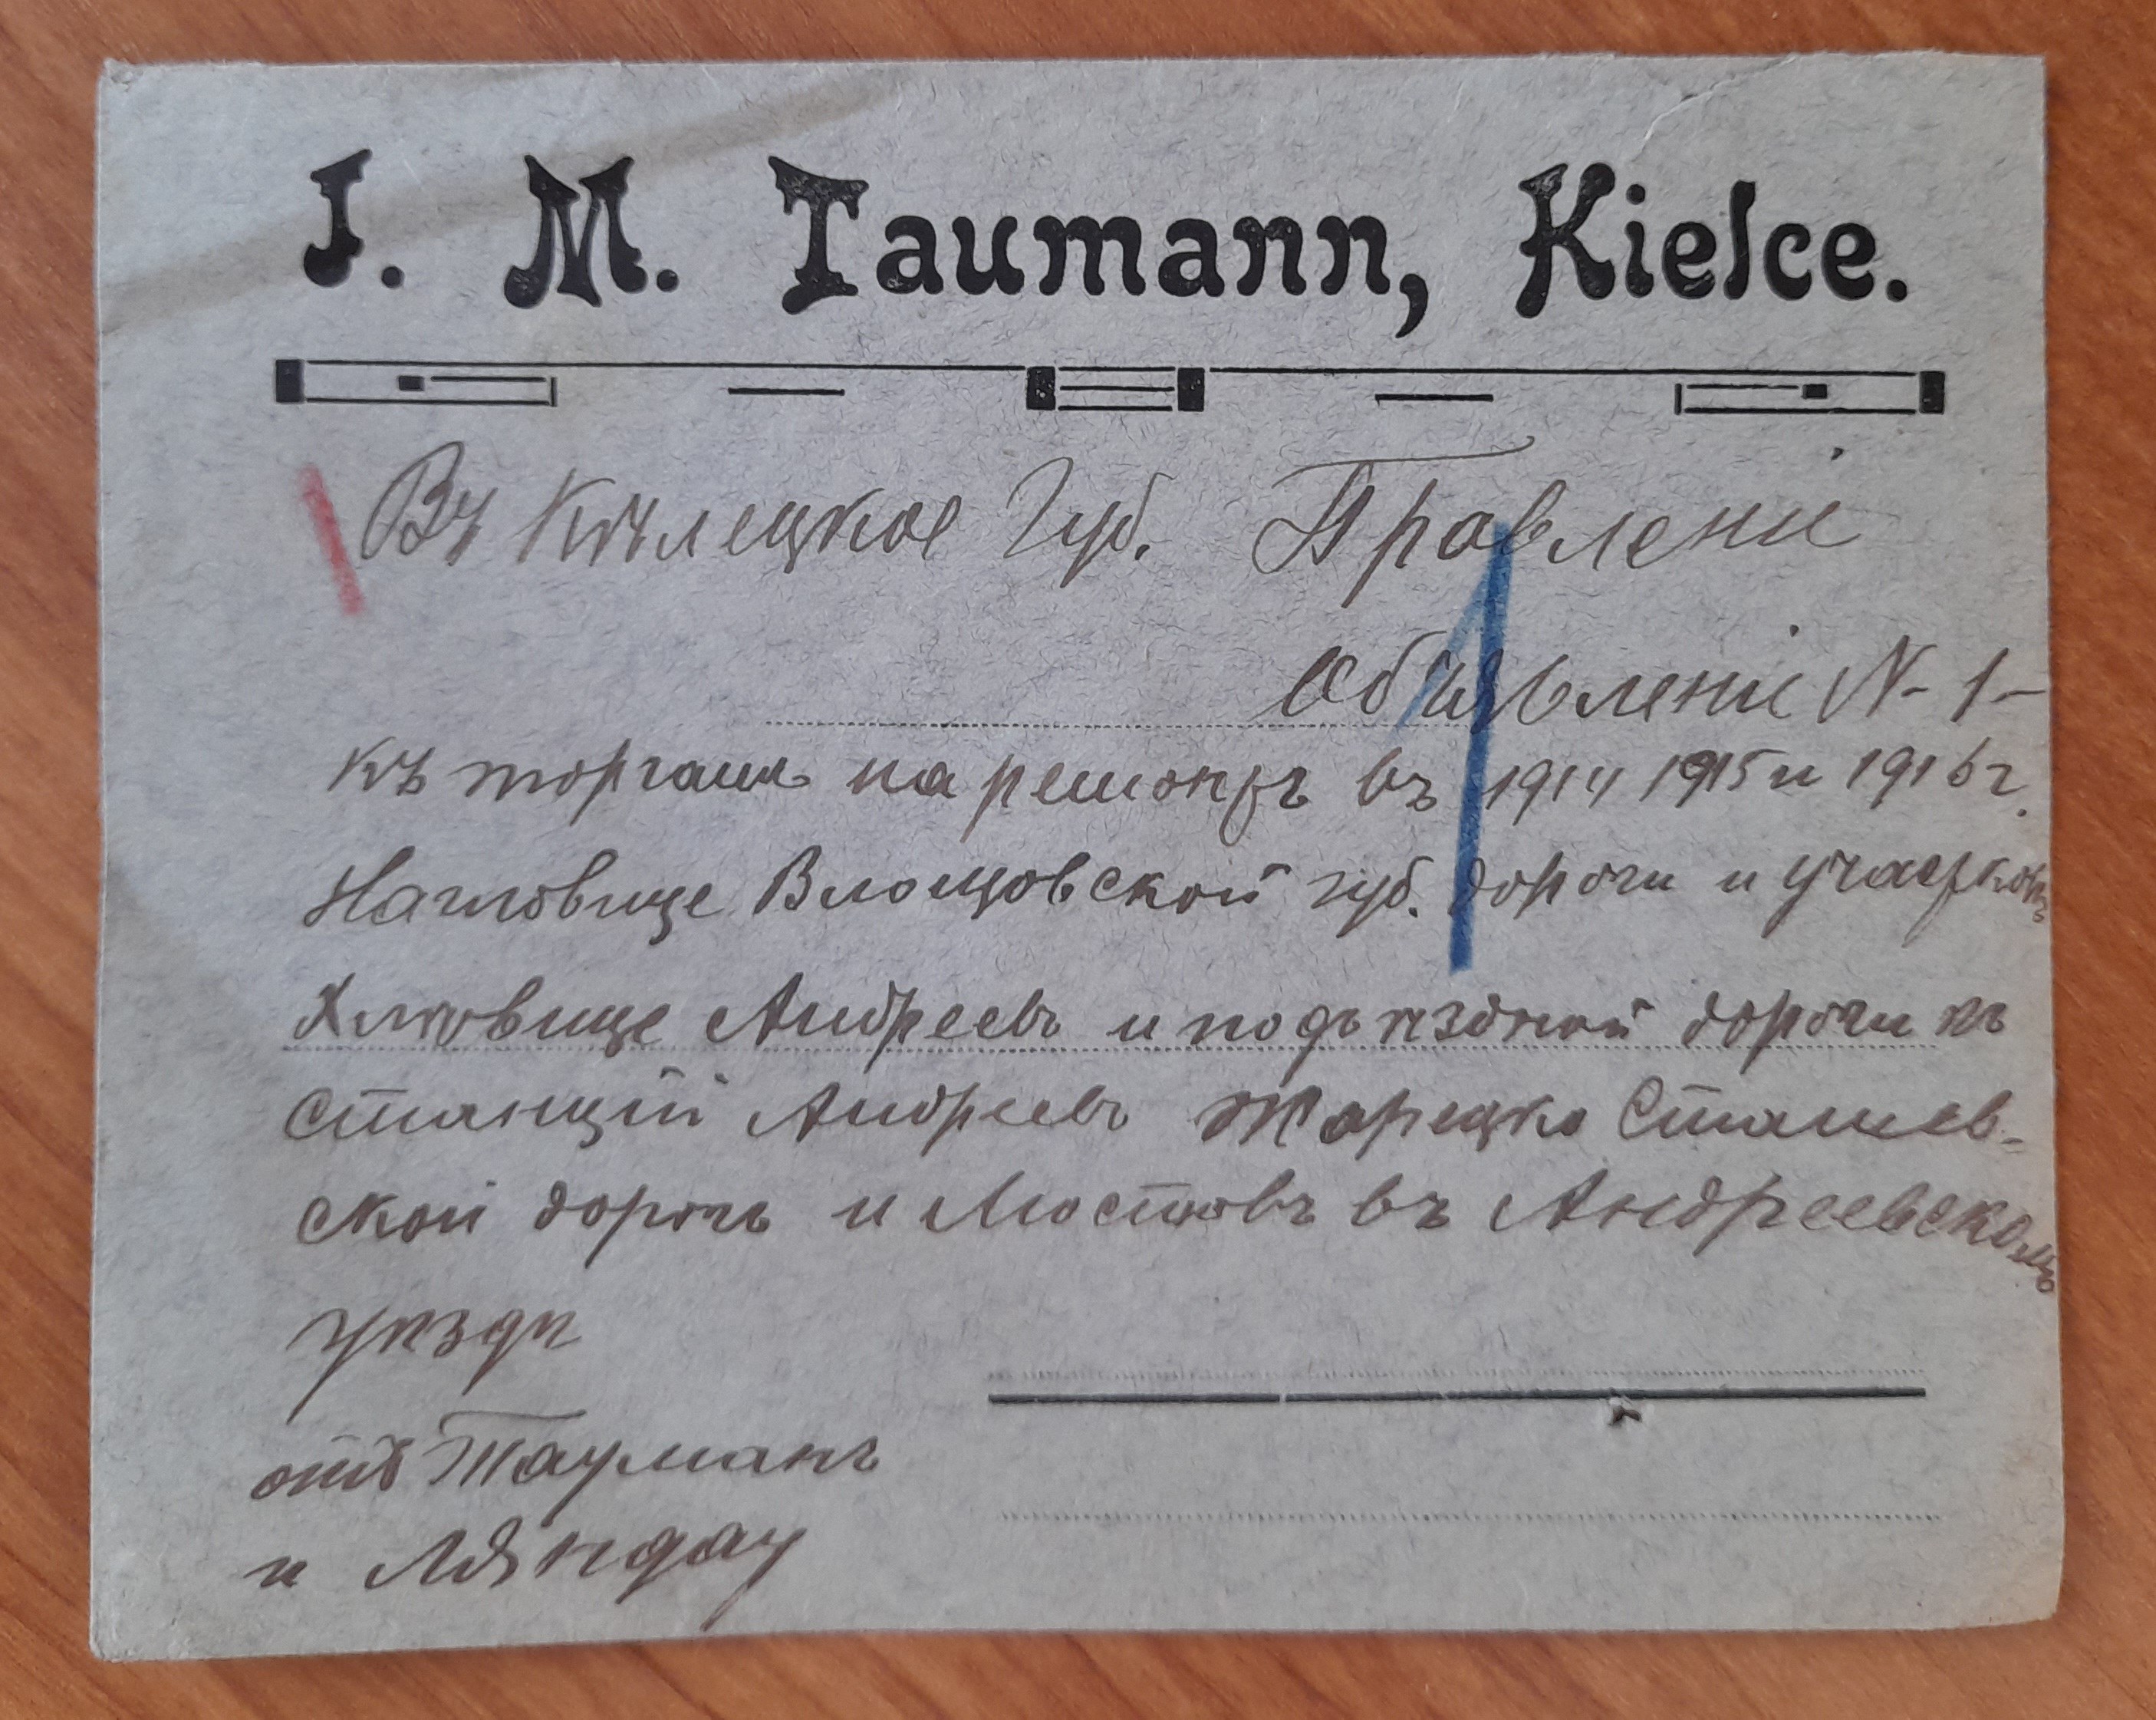 J. M. Taumann, Kielce.
Въ Кѣлецкое Губ. Правленіе
Объявленіе N-1-
къ торгамъ на ремонтъ въ 1914 1915 и 1916 г.
Нагловице Влощовской губ. дороги и участковъ
Хмѣовице Андреевъ и подъѣздной дороги къ
станціи Андреевъ Жарецко Сташев-
ской дорогъ и Мостовъ въ Андреевскомъ
уѣздѣ
отъ Тауманъ
и Ляндау